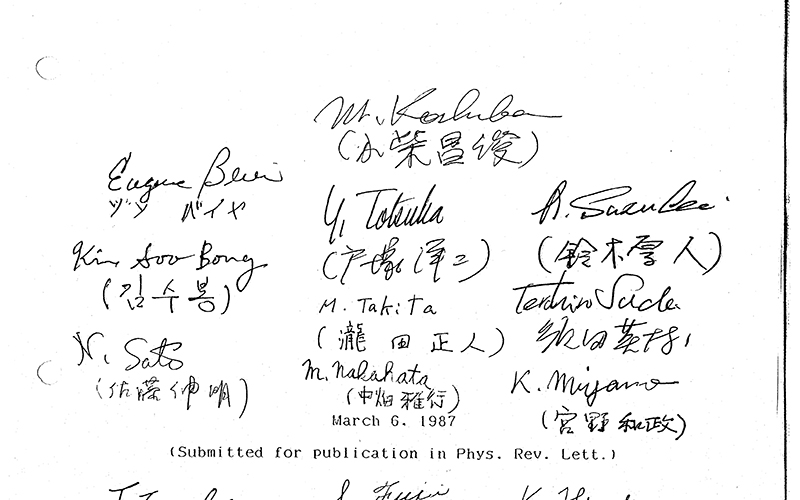 M. Koshiba
(小柴昌俊)
Eugene Beier
ヅヅ バイヤ
Y. Totsuka
(戸塚洋二)
A. Suzuki
(鈴木厚人)
Kim Soo Bong
(김수봉)
M. Takita
(瀧田正人)
Teruhiro Suda
須田英博
N. Sato
(佐藤伸明)
M. Nakahata
(中畑雅行)
K. Miyano
(宮野和政)
March 6, 1987
(Submitted for publication in Phys. Rev. Lett.)